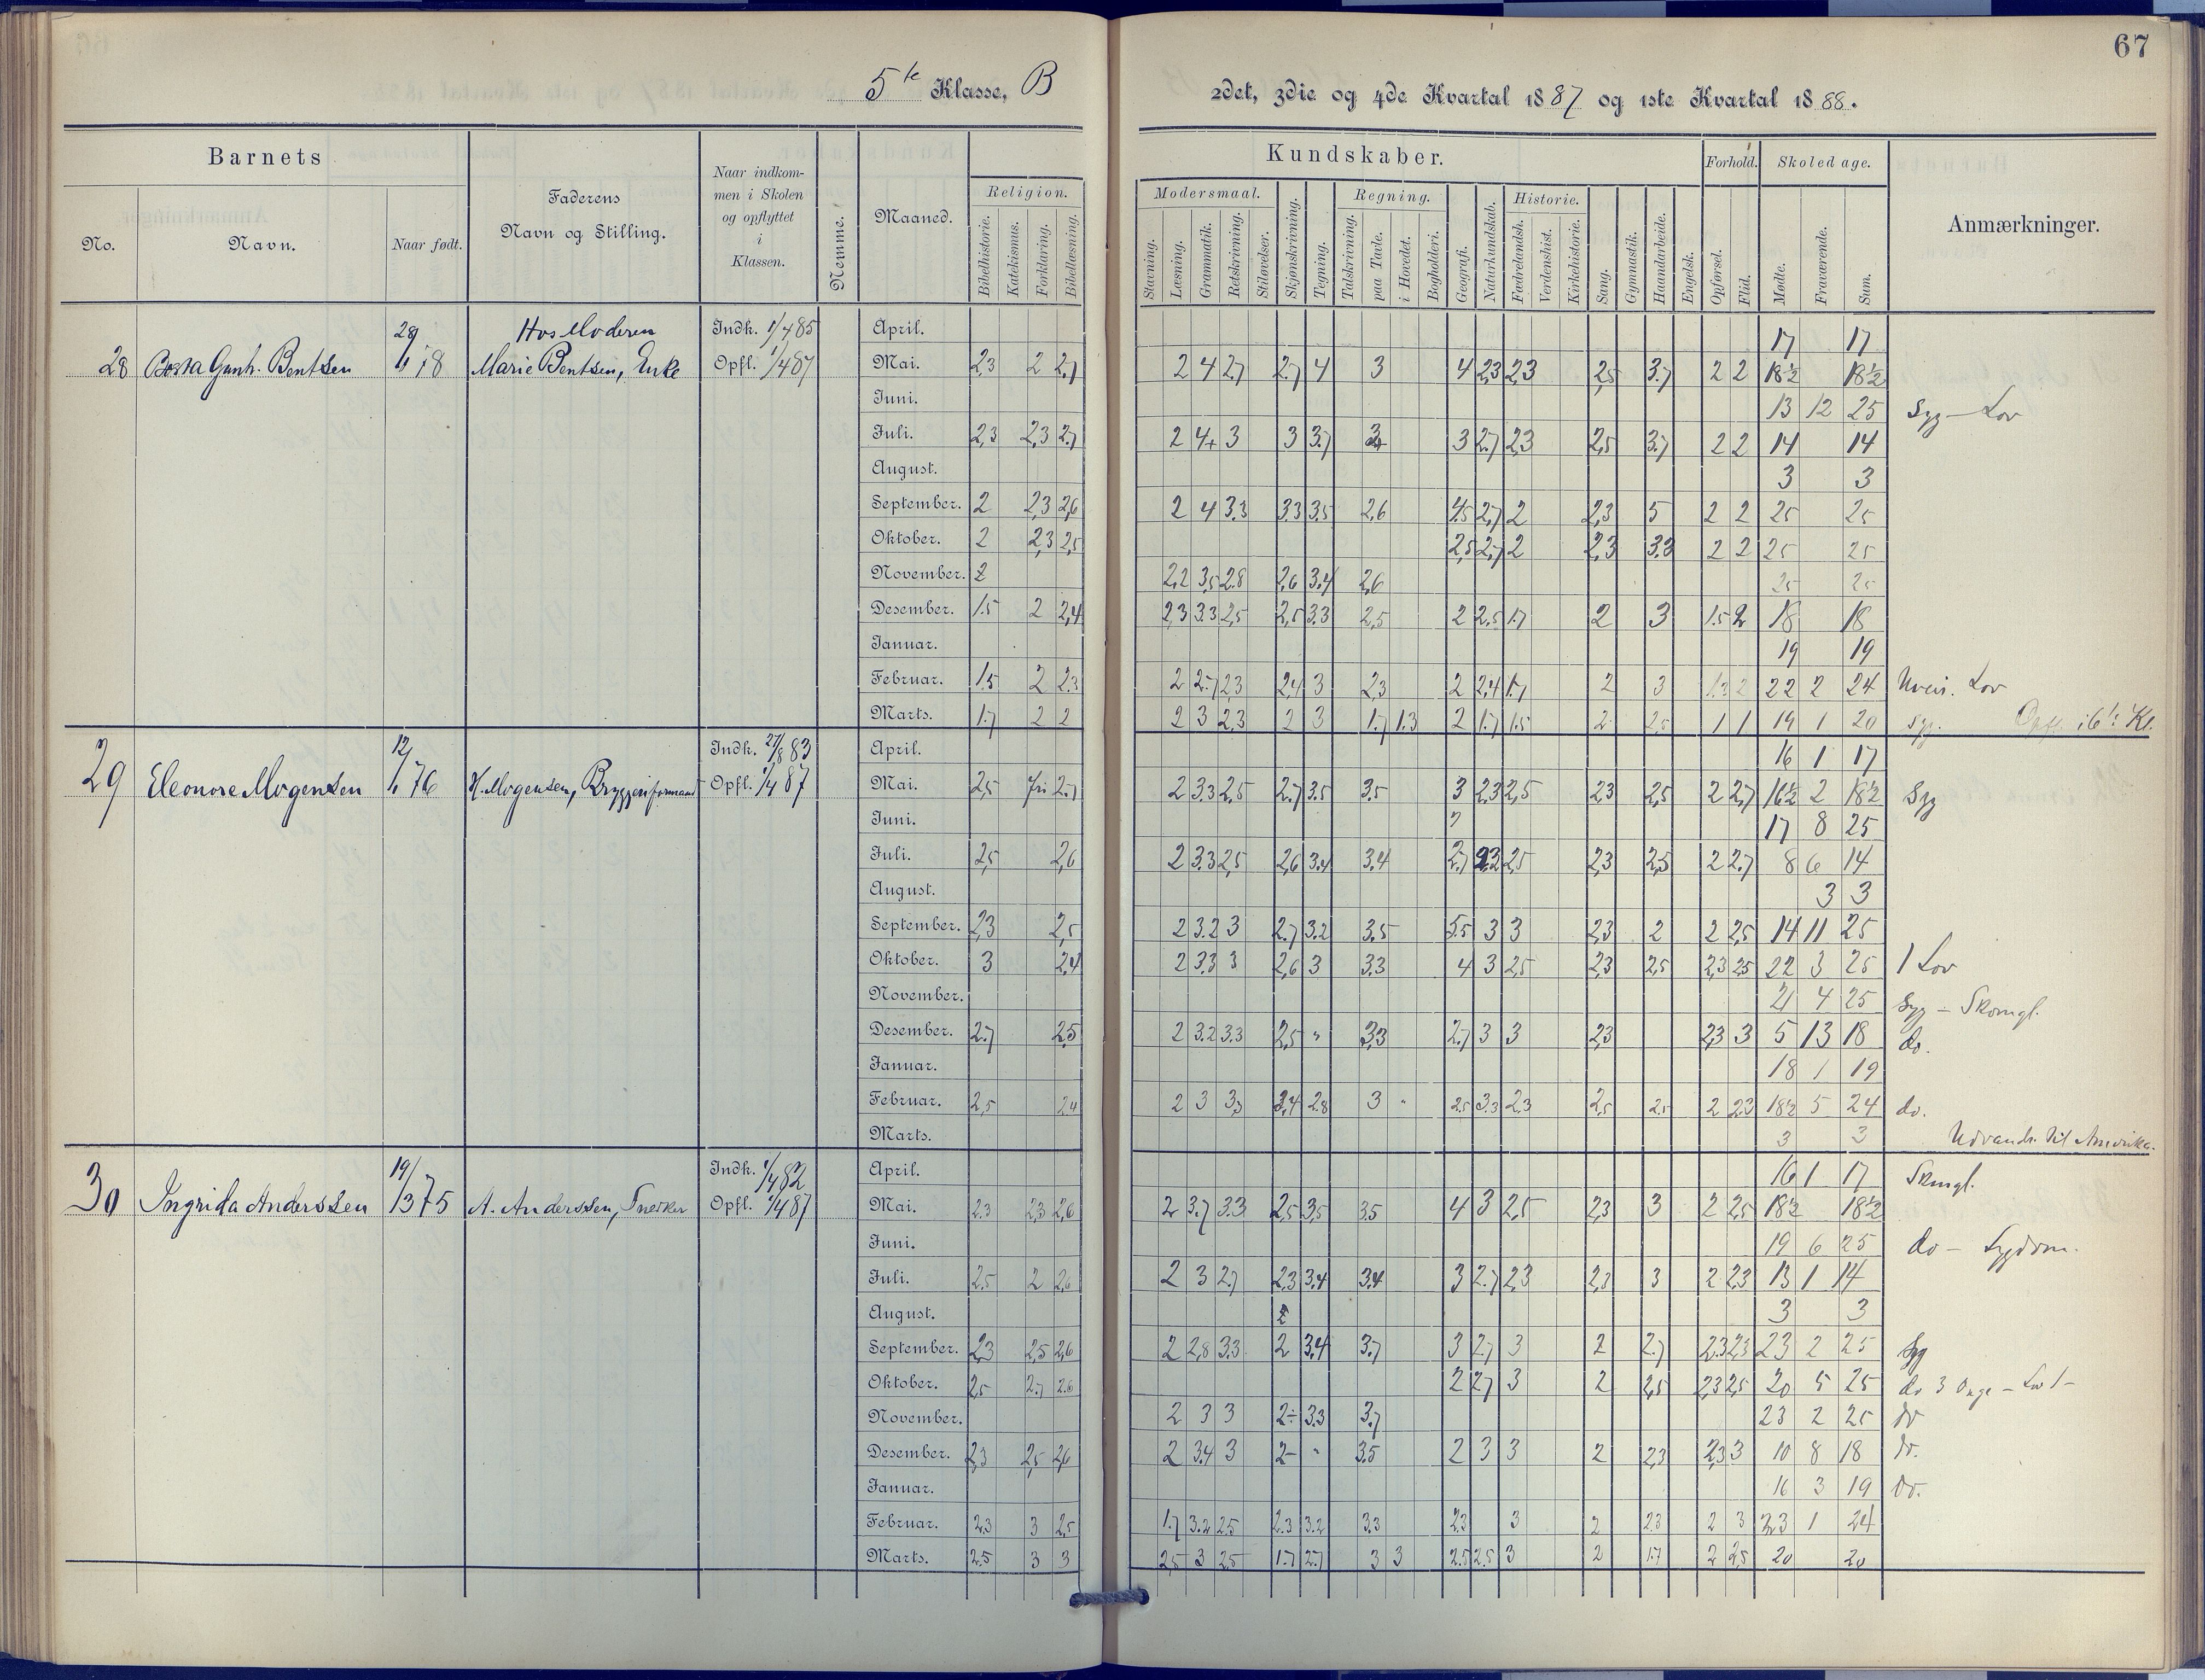 67
5te Klasse, B
2det, 3die og 4de Kvartal 1887 og 1ste Kvartal 1888.
Barnets
No.
Navn.
Naar født.
Faderens
Navn og Stilling.
Naar indkom-
men i Skolen
og opflyttet
i
Klassen.
Nemme.
Maaned.
Religion.
Bibelhistorie.
Katekismus.
Forklaring.
Bibellæsning.
Kundskaber.
Modersmaal.
Stavning.
Læsning.
Grammatik.
Retskrivning.
Stiløvelser.
Skjønskrivning.
Tegning.
Regning.
Talskrivning.
paa Tavle.
i Hovedet.
Bogholderi.
Geografi.
Naturkundskab.
Historie.
Fædrelandsh.
Verdenshist.
Kirkehistorie.
Sang.
Gymnastik.
Haandarbeide.
Engelsk.
Forhold.
Opførsel.
Flid.
Skoledage.
Mødte.
Fraværende.
Sum.
Anmærkninger.
28 Gunh. Bentsen
Hos Moderen
Marie Bentsen, Enke
Indk. 1/4 85
Opfl. 1/4 87
April. 17 17
Mai. 2,3 2 2,7 2 4 2,7 2,7 4 3 4 2,3 2,3 2,5 3,7 2 2 18½ 18½
Juni. 13 12 25 Syg – Lov
Juli. 2,3 2,3 2,7 2 4+ 3 3 3,7 3 2,7 2,3 2,5 3,7 2 2 14 14
August. 3 3
September. 2 2,3 2,6 2 4 3,3 3,3 3,5 2,6 4,5 2,7 2 2,3 5 2 2 25 25
Oktober. 2 2,3 2,5 2,5 2,7 2 2,3 3,3 2 2 25 25
November. 2 2,2 3,5 2,8 2,6 3,4 2,6 25 25
Desember. 1,5 2 2,4 2,3 3,3 2,5 2,5 3,3 2,5 2 2,5 1,7 2 3 1,5 2 18 18
Januar. 19 19
Februar. 1,5 2 2,3 2 2,7 2,3 2,4 3 2,3 2 2,4 1,7 2 3 1,3 2 22 2 24 Uveir. Lov
Marts. 1,7 2 2 2 3 2,3 2 3 1,7 1,3 2 1,7 1,5 2 2,5 1 1 19 1 20 Syg. Opfl. i 6te Kl.
29 Eleonore Mogensen
12/1 76
H. Mogensen, Bryggeriformand
Indk. 27/8 83
Opfl. 1/4 87
April. 16 1 17
Mai. 2,5 fri 2,7 2 3,3 2,5 2,7 3,5 3,5 3 2,3 2,5 2,3 2,5 2 2,7 16½ 2 18½ Syg
Juni. 17 8 25
Juli. 2,5 2,6 2 3,3 2,5 2,6 3,4 3,4 2,7 2,3 2,5 2,3 2,5 2 2,7 8 6 14
August. 3 3
September. 2,3 2,5 2 3,2 3 2,7 3,2 3,5 3,5 3 3 2,3 2 2 2,5 14 11 25
Oktober. 3 2,4 2 3,3 3 2,6 3 3,3 4 3 2,5 2,3 2,5 2,3 2,5 22 3 25 1 Lov
November. 21 4 25 Syg – Skomgl.
Desember. 2,7 2,5 2 3,2 3,3 2,5 " 3,3 2,7 3 3 2,3 2,3 3 5 13 18 do.
Januar. 18 1 19
Februar. 2,5 2,4 2 3 3,3 2,4 2,8 3 " 2,5 3,3 2,3 2,5 2,5 2 2,3 18½ 5 24 do.
Marts. 3 3 Udvandr. til Amerika.
30 Ingrida Anderssen
19/3 75
A. Anderssen, Snekker
Indk. 1/4 82
Opfl. 1/4 87
April. 16 1 17 Skmgl.
Mai. 2,3 2,3 2,6 2 3,7 3,3 2,5 3,5 3,5 4 3 2,5 2,3 3 2 2,5 18½ 18½
Juni. 19 6 25 do – Sygdom.
Juli. 2,5 2 2,6 2 3 2,7 2,3 3,4 3,4 3 2,7 2,3 2,3 3 2 2,3 13 1 14
August. 2 3 3
September. 2,3 2,5 2,6 2 2,8 3,3 2 3,4 3,7 3 2,7 3 2 2,7 2,3 2,3 23 2 25 Syg
Oktober. 2,5 2,7 2,6 2 2,7 3 2 2,5 2,3 2,5 20 5 25 do 3 – Lov 1 –
November. 2 3 3 2÷ 3,3 3,7 23 2 25 do
Desember. 2,3 2,5 2,6 2 3,4 3 2- " 3,5 2 3 3 2 2,3 2,3 3 10 8 18 do.
Januar. 16 3 19 do.
Februar. 2,3 3 2,5 1,7 3,2 2,5 2,3 3,2 3,3 2,3 3 2 2,3 2 3 23 1 24
Marts. 2,5 3 3 2,5 3 2,5 1,7 2,7 3 3 2,5 2,5 3 2 1,7 2 2,5 20 20